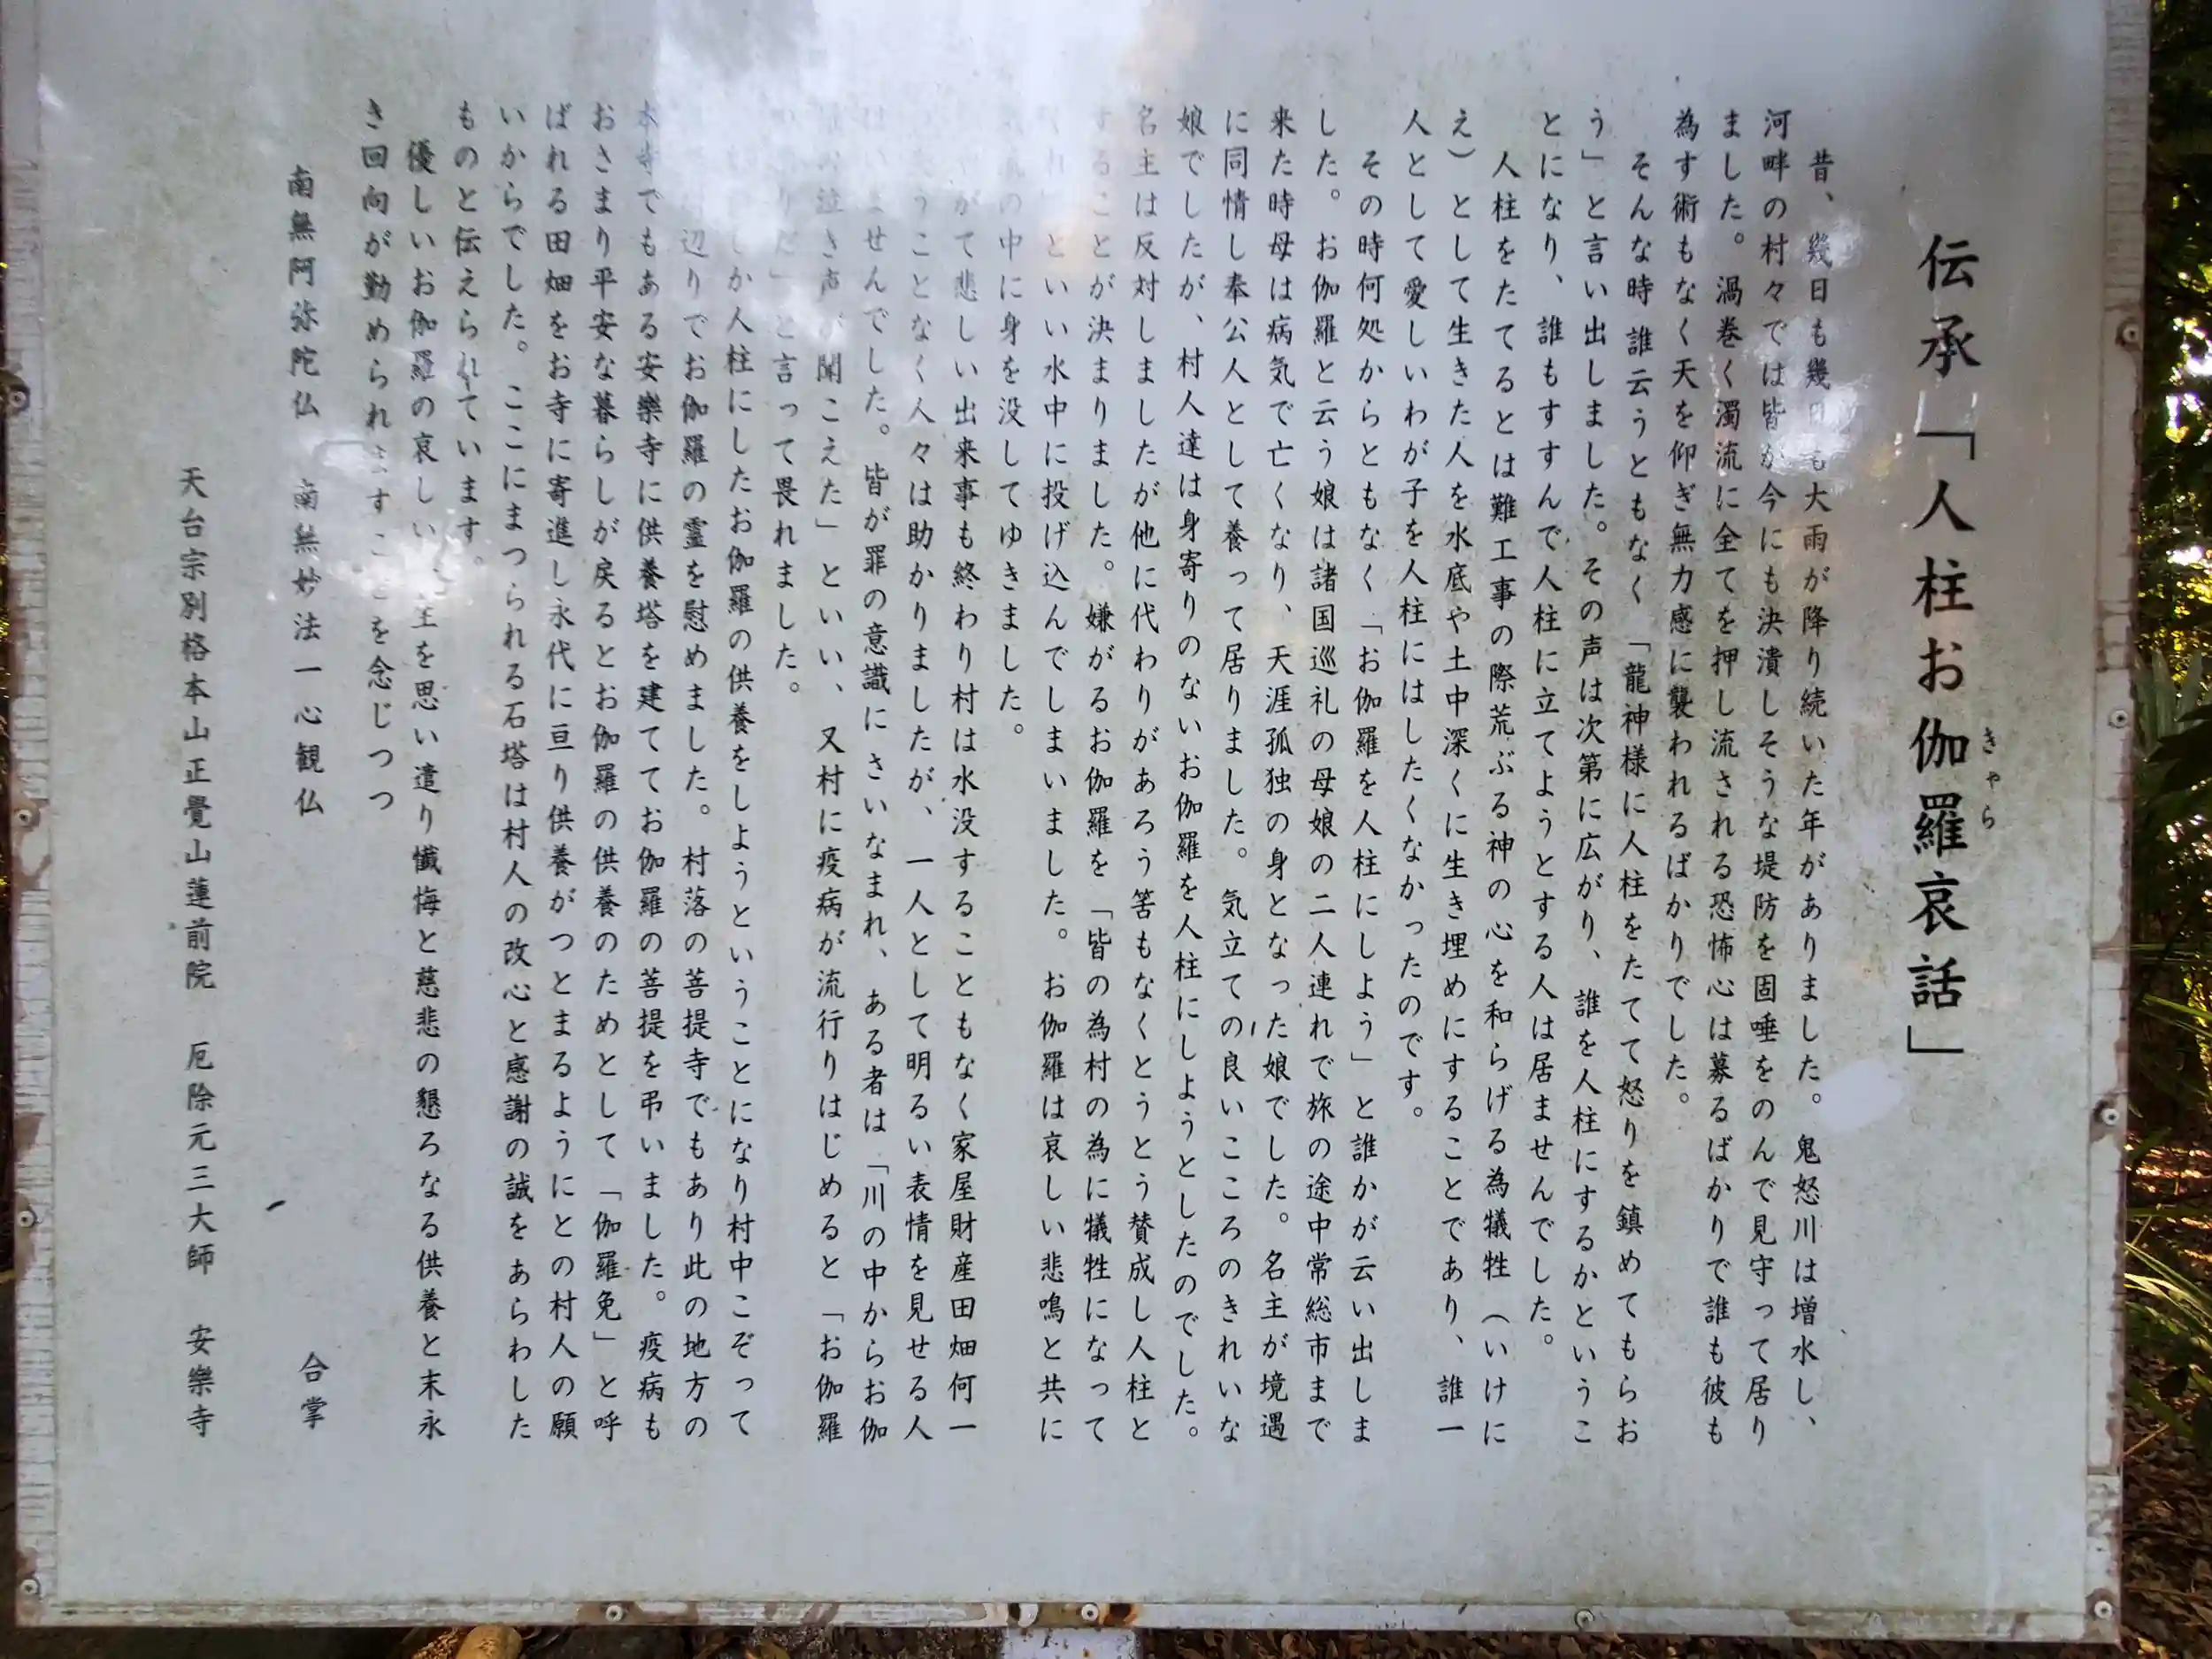 伝承「人柱お伽羅哀話」
きゃら
昔、幾日も幾日も大雨が降り続いた年がありました。鬼怒川は増水し、
河畔の村々では皆が今にも決潰しそうな堤防を固唾をのんで見守って居り
ました。渦巻く濁流に全てを押し流される恐怖心は募るばかりで誰も彼も
為す術もなく天を仰ぎ無力感に襲われるばかりでした。
そんな時誰云うともなく「龍神様に人柱をたてて怒りを鎮めてもらお
う」と言い出しました。その声は次第に広がり、誰を人柱にするかというこ
とになり、誰もすすんで人柱に立てようとする人は居ませんでした。
人柱をたてるとは難工事の際荒ぶる神の心を和らげる為犠牲（いけに
え）として生きた人を水底や土中深くに生き埋めにすることであり、誰一
人として愛しいわが子を人柱にはしたくなかったのです。
その時何処からともなく「お伽羅を人柱にしよう」と誰かが云い出しま
した。お伽羅と云う娘は諸国巡礼の母娘の二人連れで旅の途中常総市まで
来た時母は病気で亡くなり、天涯孤独の身となった娘でした。名主が境遇
に同情し奉公人として養って居りました。気立ての良いこころのきれいな
娘でしたが、村人達は身寄りのないお伽羅を人柱にしようとしたのでした。
名主は反対しましたが他に代わりがあろう筈もなくとうとう賛成し人柱と
することが決まりました。嫌がるお伽羅を「皆の為村の為に犠牲になって
れ」といい水中に投げ込んでしまいました。お伽羅は哀しい悲鳴と共に
の中に身を没してゆきました。
がて悲しい出来事も終わり村は水没することもなく家屋財産田畑何一
うことなく人々は助かりましたが、一人として明るい表情を見せる人
はいませんでした。皆が罪の意識にさいなまれ、ある者は「川の中からお伽
の泣き声が聞こえた」といい、又村に疫病が流行りはじめると「お伽羅
りだ」と言って畏れました。
しか人柱にしたお伽羅の供養をしようということになり村中こぞって
辺りでお伽羅の霊を慰めました。村落の菩提寺でもあり此の地方の
本寺でもある安樂寺に供養塔を建ててお伽羅の菩提を弔いました。疫病も
おさまり平安な暮らしが戻るとお伽羅の供養のためとして「伽羅免」と呼
ばれる田畑をお寺に寄進し永代に亘り供養がつとまるようにとの村人の願
いからでした。ここにまつられる石塔は村人の改心と感謝の誠をあらわした
ものと伝えられています。
優しいお伽羅の哀しい生を思い遣り懺悔と慈悲の懇ろなる供養と末永
き回向が勤められますことを念じつつ
南無阿弥陀仏　南無妙法一心観仏　合掌
天台宗別格本山正覺山蓮前院　厄除元三大師　安樂寺